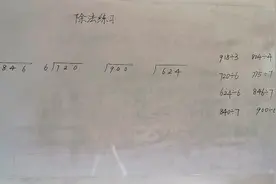 除法练习
846 6√720 √900 √624
918÷3 804÷4
720÷6 775÷7
624÷6 846÷7
840÷7 900÷6